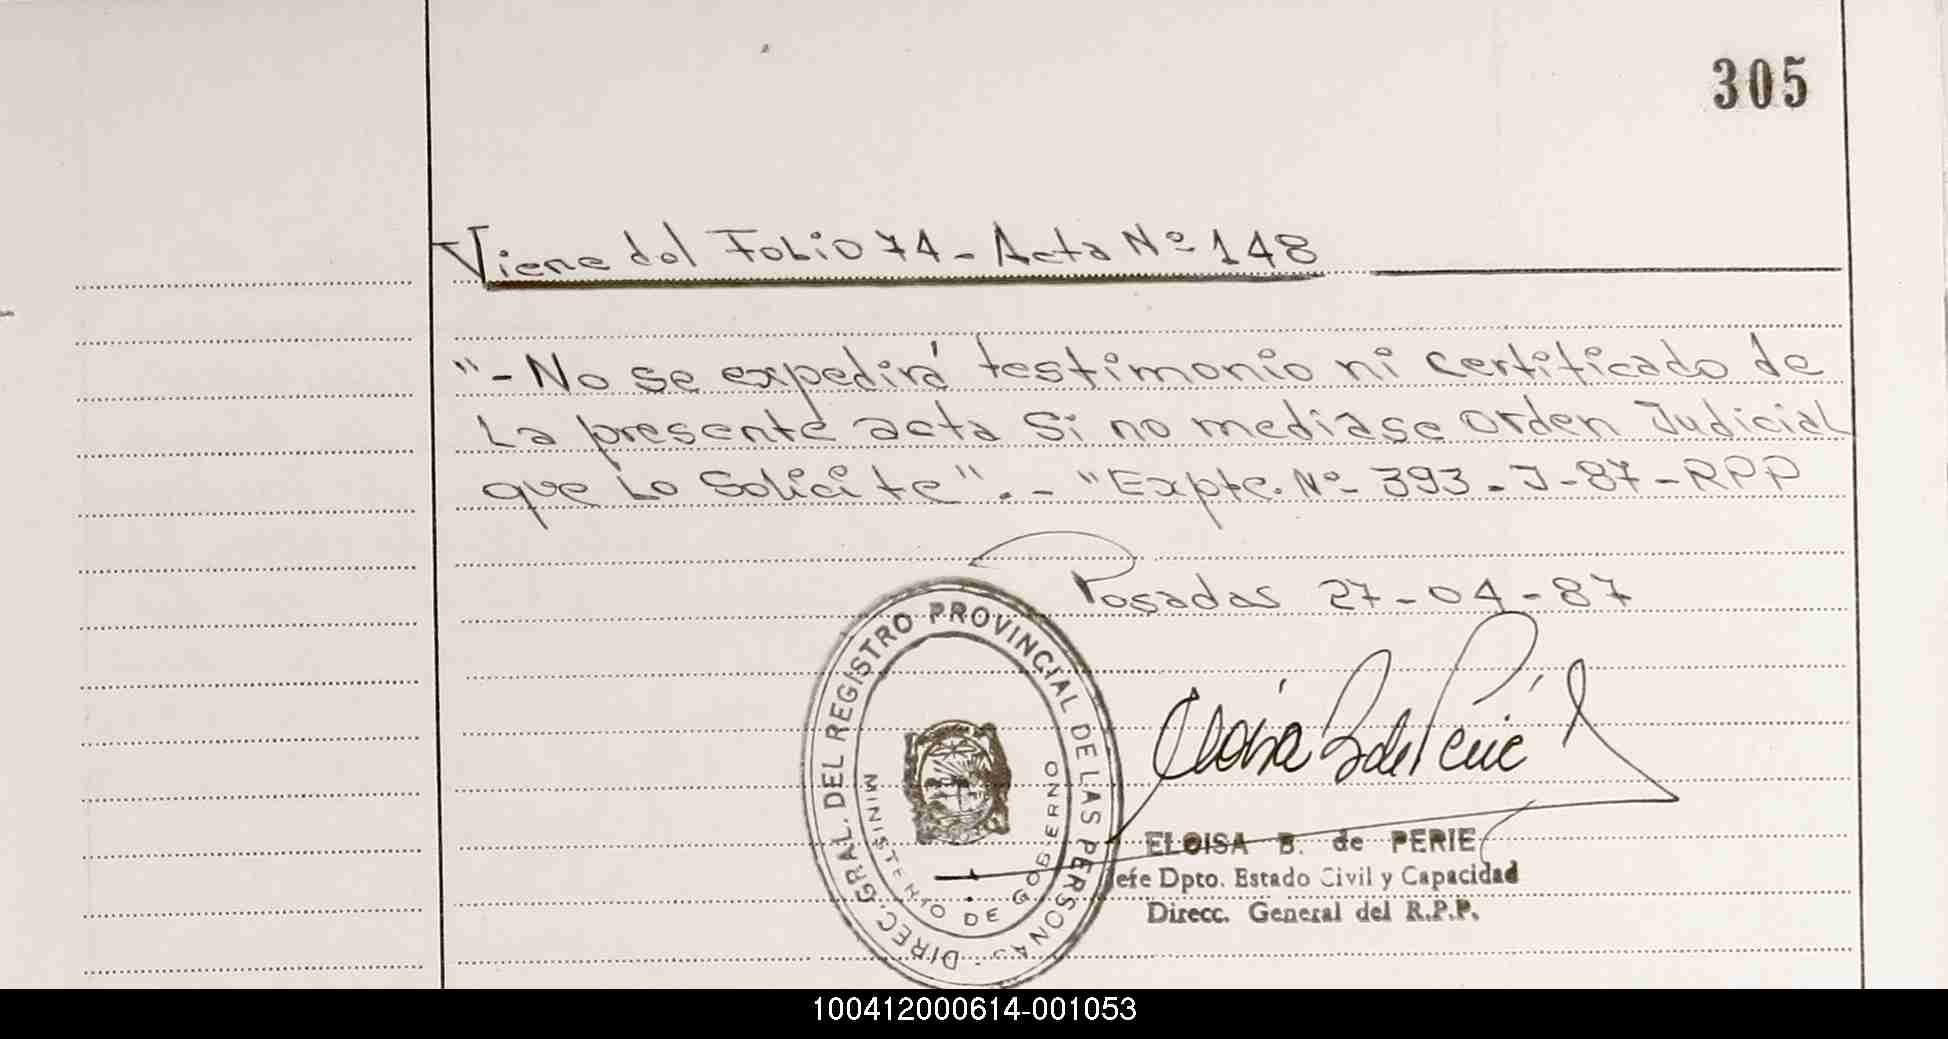 305
Viene del Folio 74 - Acta Nº 148
"- No se expedirá testimonio ni certificado de
La presente acta Si no mediase orden Judicial
que Lo Solicite". - "Expte. Nº 393 - J - 87 - RPP
Posadas 27-04-87
DIREC. GRAL. DEL REGISTRO PROVINCIAL DE LAS PERSONAS
MINISTERIO DE GOBIERNO
Eloisa B de Perie
ELOISA B. de PERIE
Jefe Dpto. Estado Civil y Capacidad
Direcc. General del R.P.P.
100412000614-001053